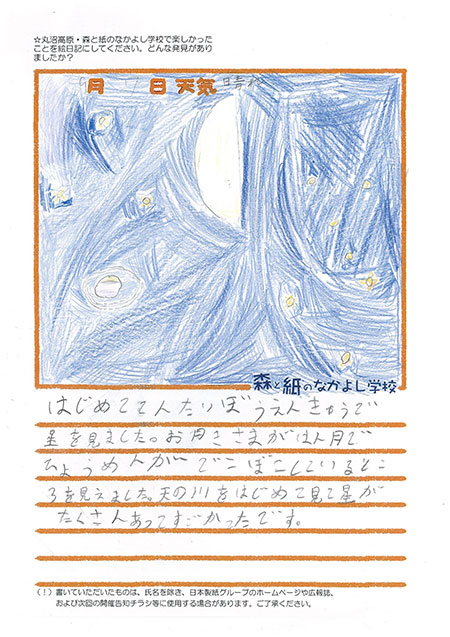 ☆丸沼高原・森と紙のなかよし学校で楽しかった
ことを絵日記にしてください。どんな発見があり
ましたか？
月 日 天気 晴れ
森と紙のなかよし学校
はじめててんたいぼうえんきょうで
星を見ました。お月さまがはん月で
ひょうめんがでこぼこしているとこ
ろを見えました。天の川をはじめて見て星が
たくさんあってすごかったです。
(！) 書いていただいたものは、氏名を除き、日本製紙グループのホームページや広報誌、
および次回の開催告知チラシ等に使用する場合があります。ご了承ください。